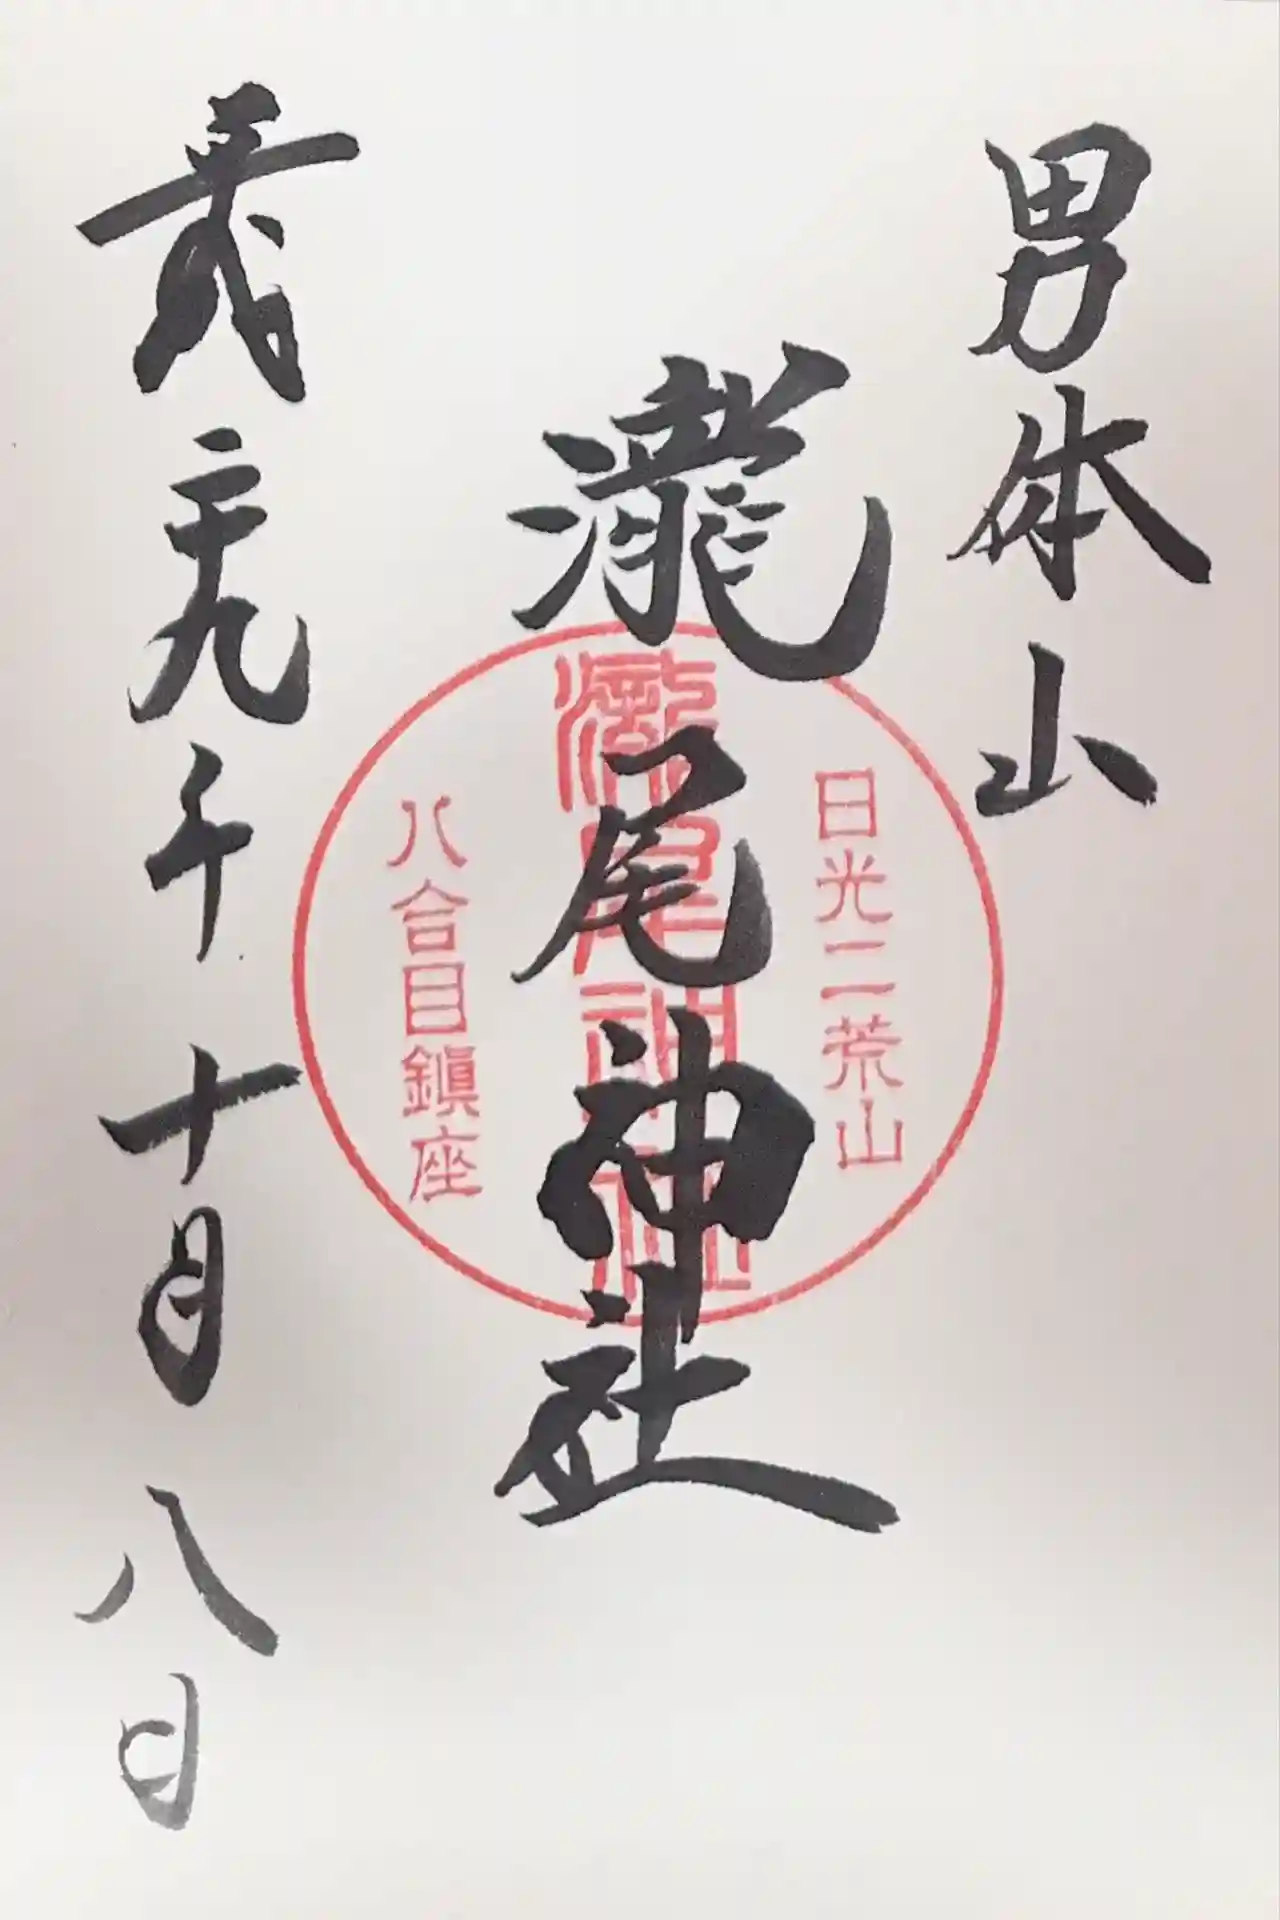 男体山
日光二荒山
瀧尾神社
瀧尾神社
八合目鎭座
平成二十九年十月八日